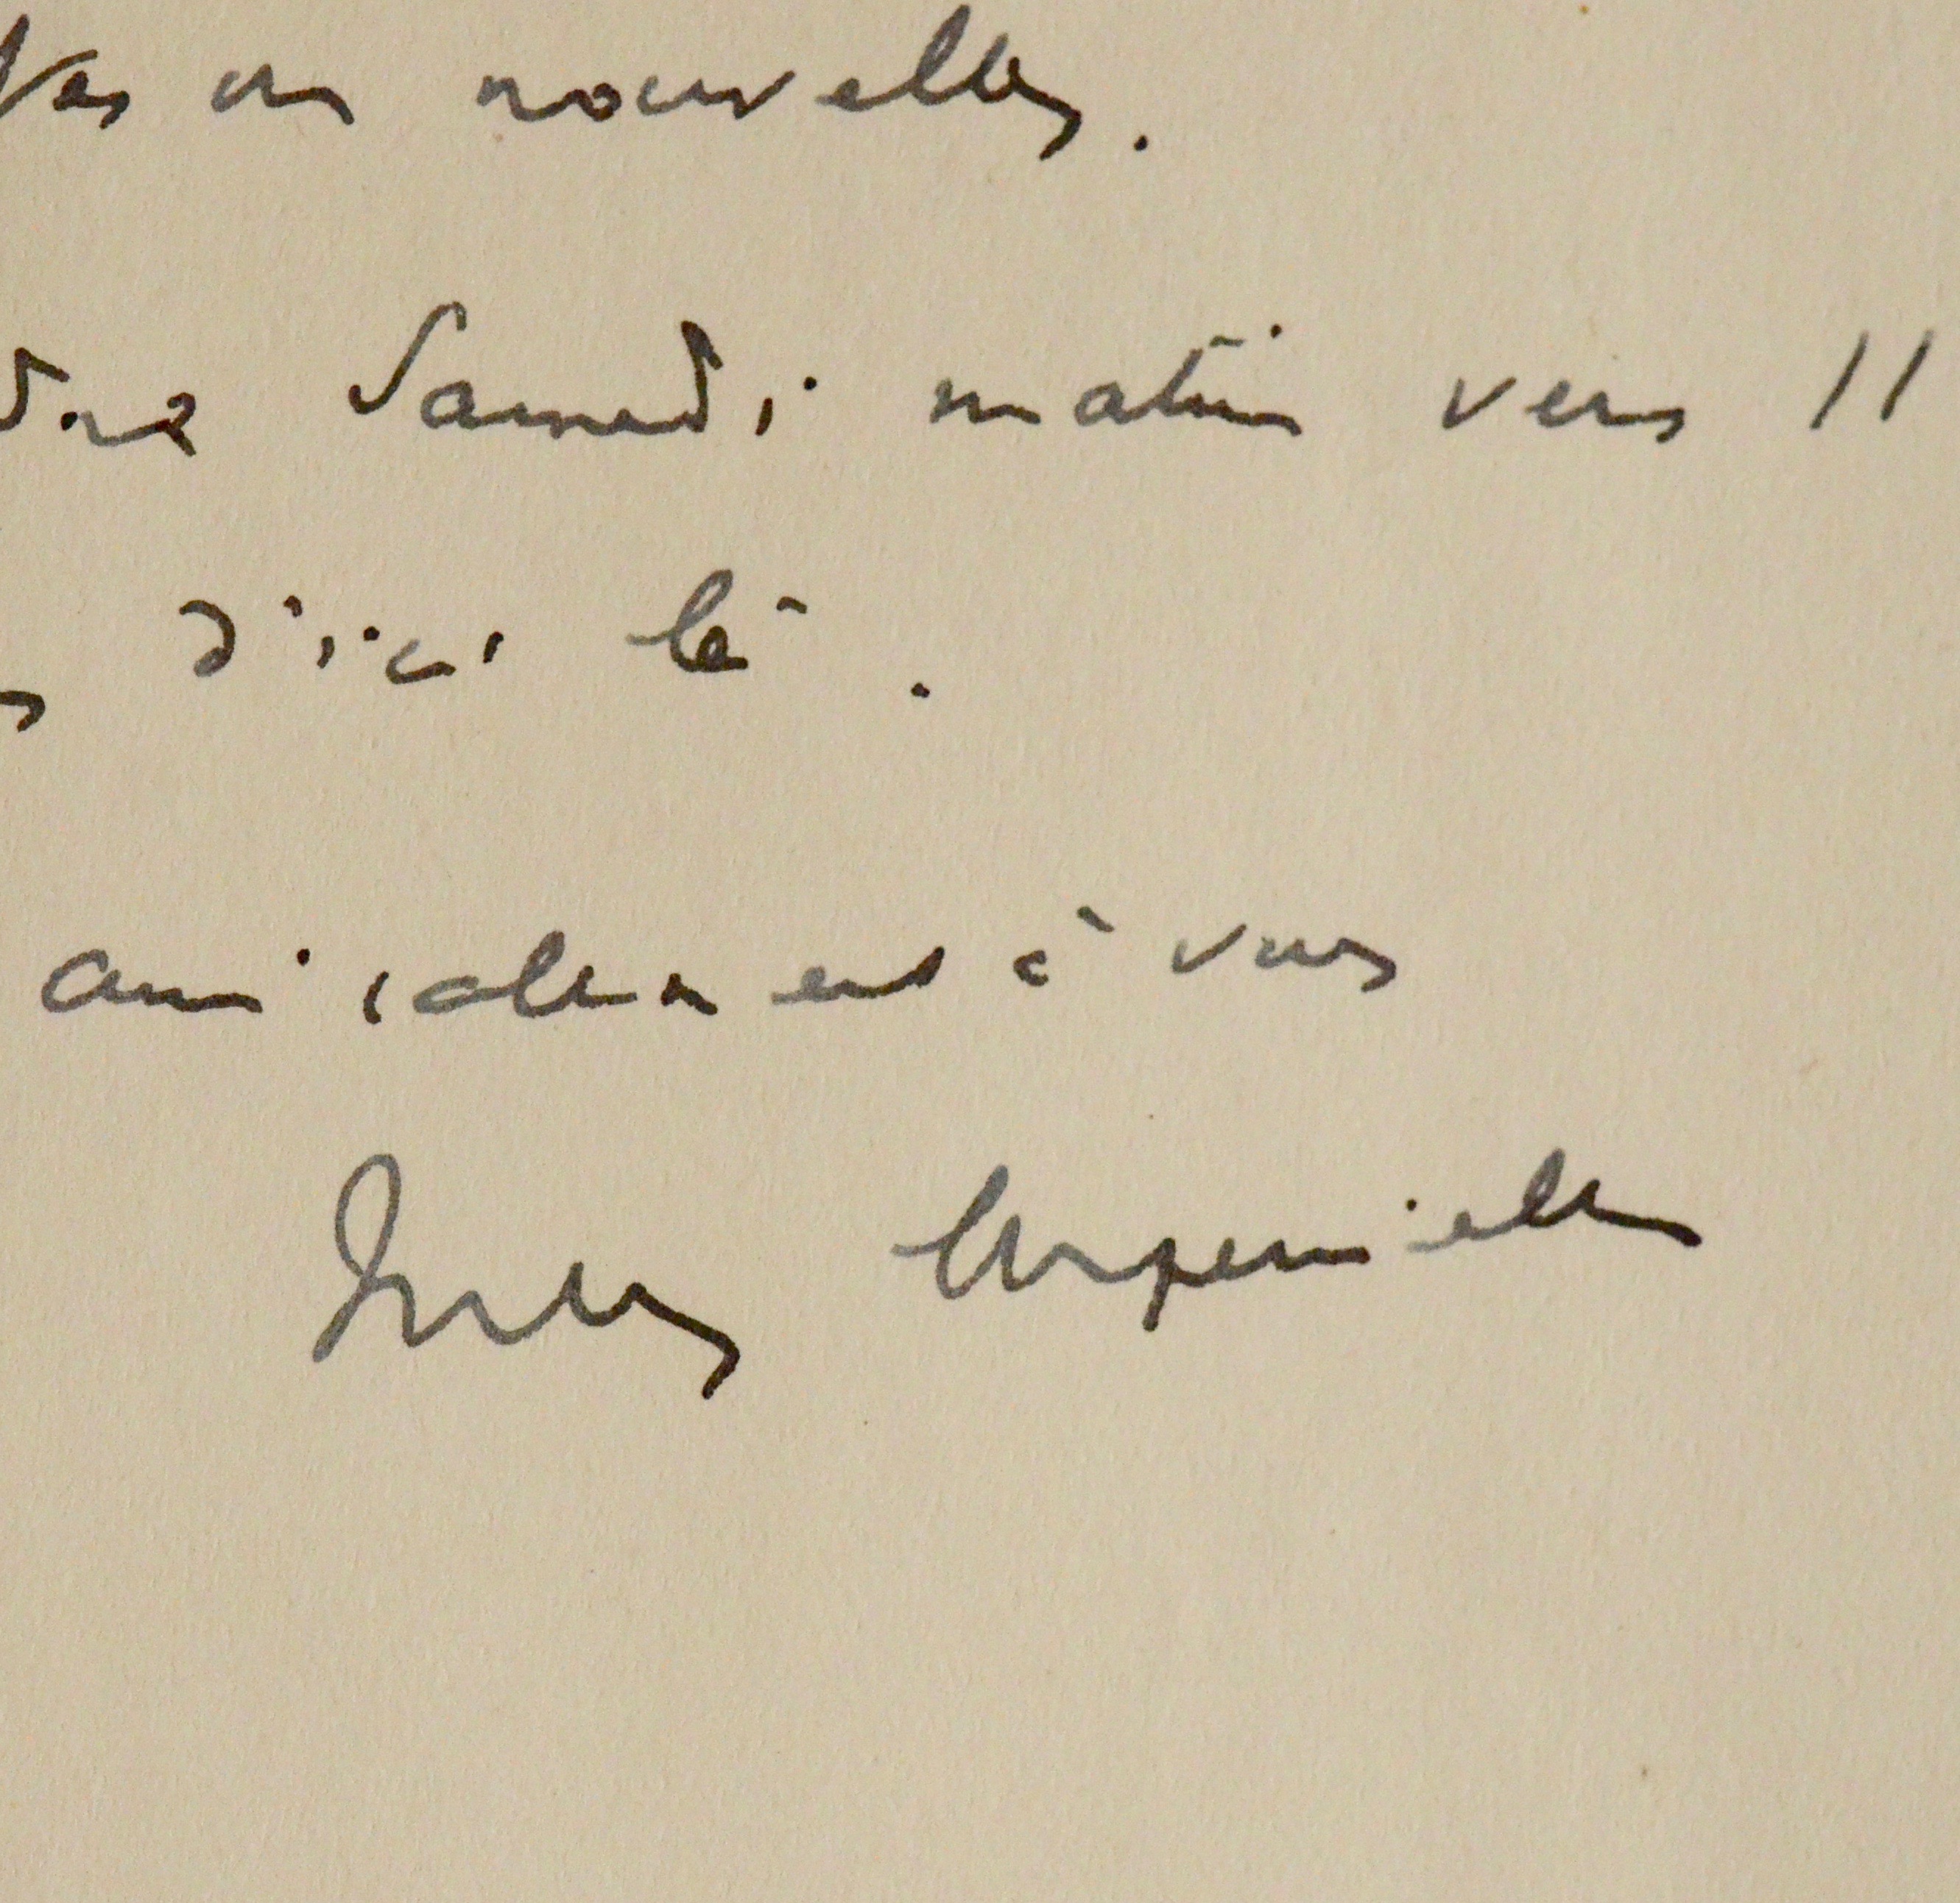 en nouvelles.
Samedi matin vers 11
d'ici là.
amicalement à vous
Jules Supervielle